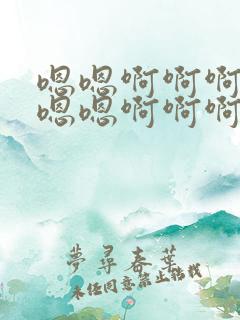 嗯嗯啊啊啊
嗯嗯啊啊啊
夢尋春葉
未经同意禁止转载